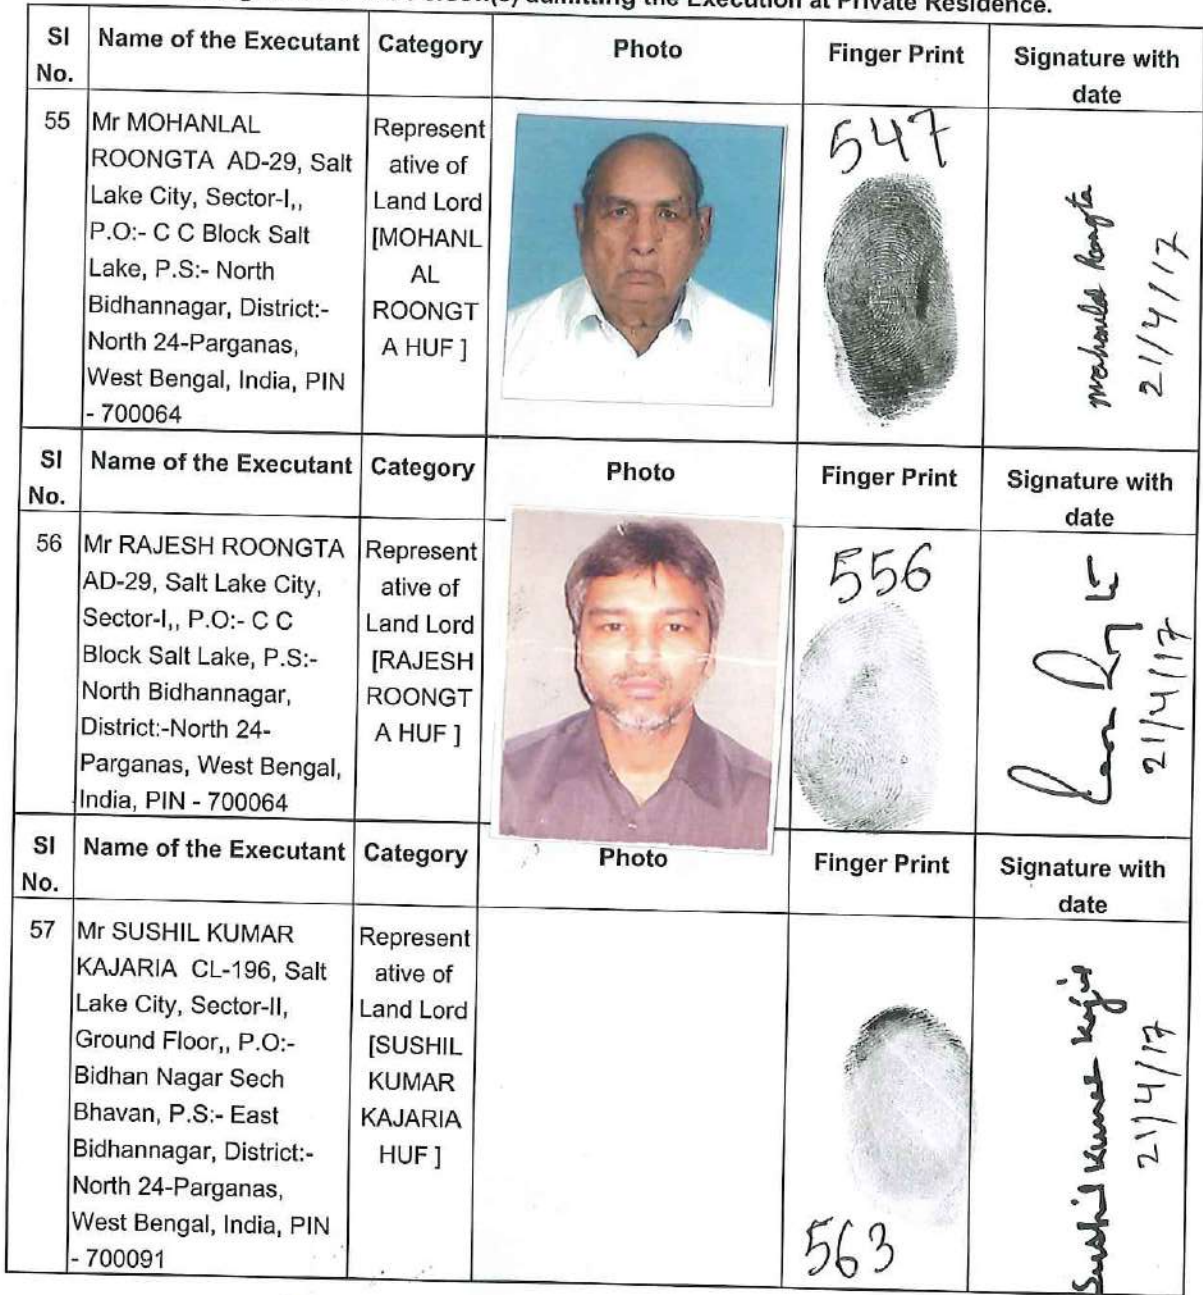 the Execution at Private Residence.
Sl No.
Name of the Executant
Category
Photo
Finger Print
Signature with date
55
Mr MOHANLAL
ROONGTA AD-29, Salt
Lake City, Sector-I,,
P.O:- C C Block Salt
Lake, P.S:- North
Bidhannagar, District:-
North 24-Parganas,
West Bengal, India, PIN
- 700064
Represent
ative of
Land Lord
[MOHANL
AL
ROONGT
A HUF ]
547
21/4/17
Sl No.
Name of the Executant
Category
Photo
Finger Print
Signature with date
56
Mr RAJESH ROONGTA
AD-29, Salt Lake City,
Sector-I,, P.O:- C C
Block Salt Lake, P.S:-
North Bidhannagar,
District:-North 24-
Parganas, West Bengal,
India, PIN - 700064
Represent
ative of
Land Lord
[RAJESH
ROONGT
A HUF ]
556
21/4/17
Sl No.
Name of the Executant
Category
Photo
Finger Print
Signature with date
57
Mr SUSHIL KUMAR
KAJARIA CL-196, Salt
Lake City, Sector-II,
Ground Floor,, P.O:-
Bidhan Nagar Sech
Bhavan, P.S:- East
Bidhannagar, District:-
North 24-Parganas,
West Bengal, India, PIN
- 700091
Represent
ative of
Land Lord
[SUSHIL
KUMAR
KAJARIA
HUF ]
563
Sushil Kumar
21/4/17